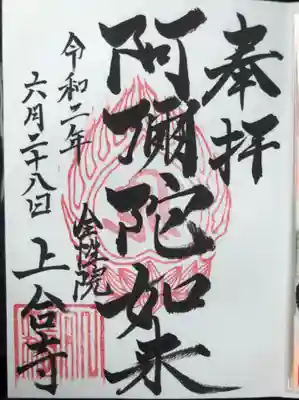 奉拝
阿彌陀如来
令和二年
六月二十八日
金性院
上台寺